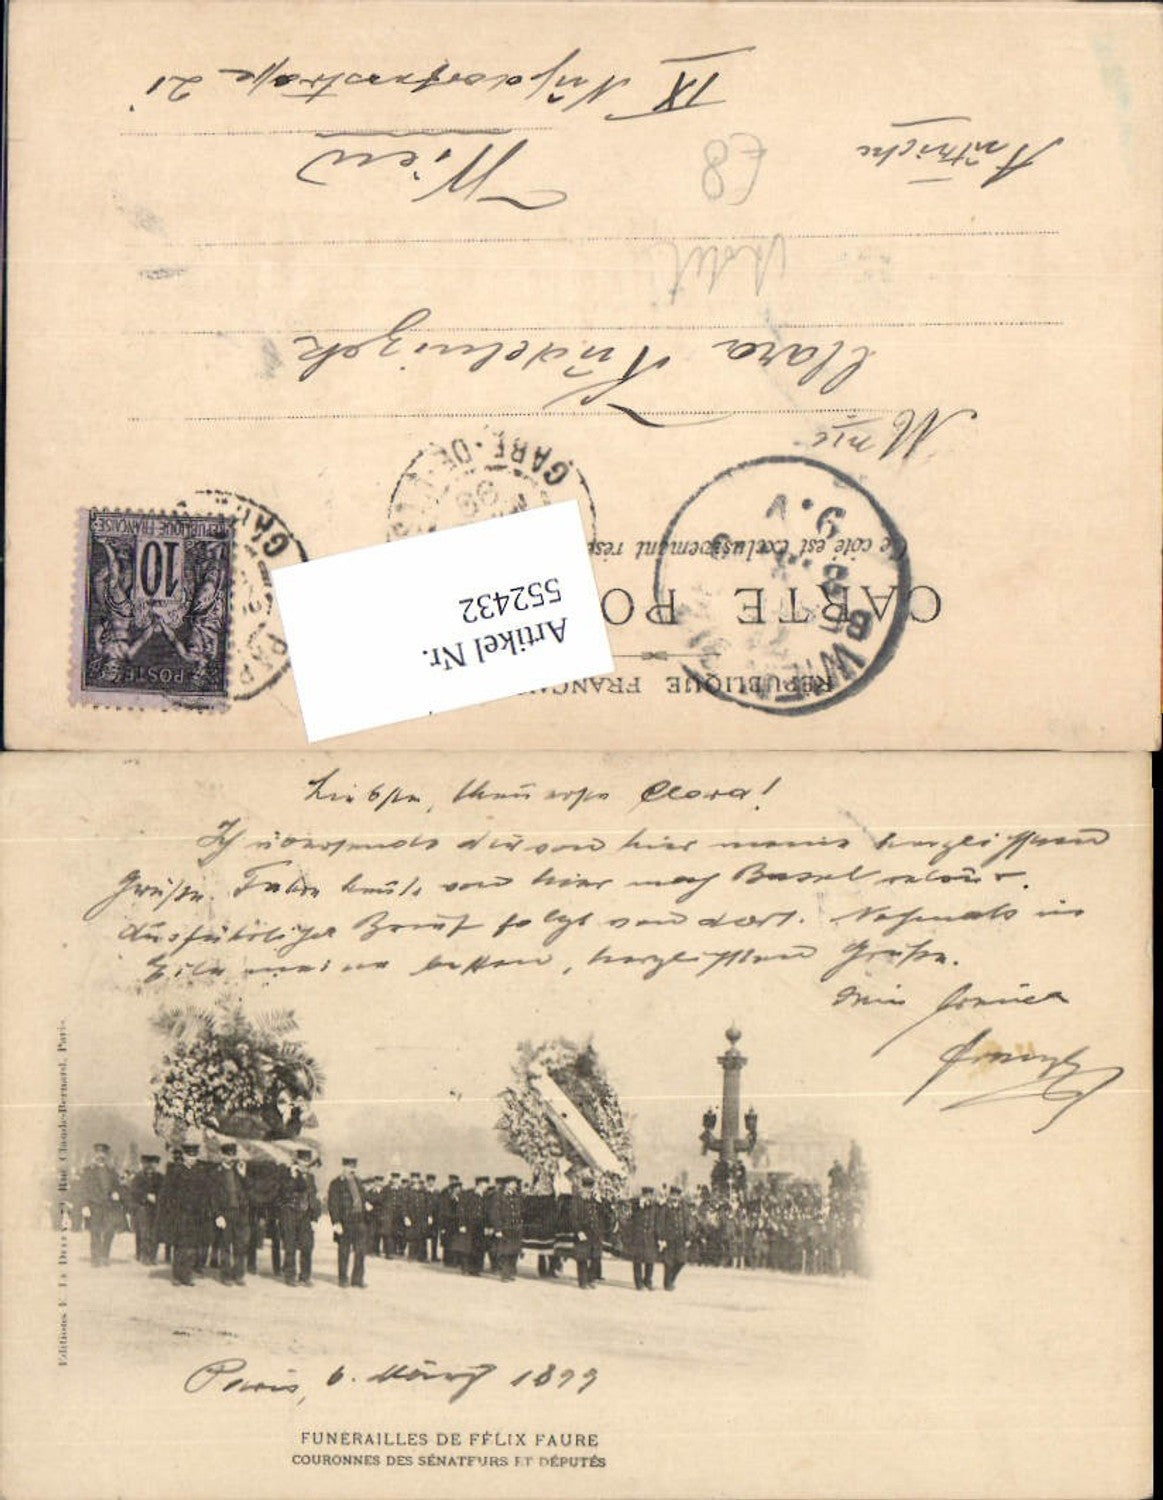 RÉPUBLIQUE FRANÇAI
CARTE PO
Ce côté est exclusivement rés
Artikel Nr.
552432
POSTE
10
REPUBLIQUE FRANÇAISE
GARE-DE-L
99
WIEN
9. V
Mme
Clara
Wien
Autriche
IX Nußdorferstraße 21
E8
Liebste, theuerste Clara!
Ich übersende dir von hier meine herzlichsten
Grüße. Fahre heute von hier nach Basel retour.
Ausführlicher Brief folgt von dort. Nochmals in
Eile meine besten, herzlichsten Grüße.
Dein
Paris, 6. März 1899
FUNÉRAILLES DE FÉLIX FAURE
COURONNES DES SÉNATEURS ET DÉPUTÉS
Rue Claude-Bernard, Paris